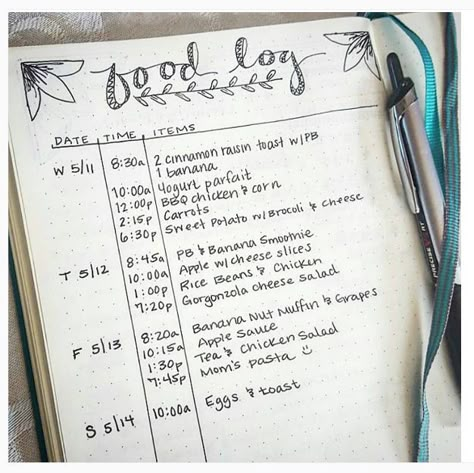 food log
DATE TIME ITEMS
W 5/11 8:30a 2 cinnamon raisin toast w/PB
1 banana
10:00a yogurt parfait
12:00p BBQ chicken & corn
2:15p Carrots
6:30p Sweet Potato w/Brocoli & cheese
T 5/12 8:45a PB & Banana Smoothie
10:00a Apple w/cheese slices
1:00p Rice Beans & Chicken
7:20p Gorgonzola cheese salad
F 5/13 8:20a Banana Nut Muffin & Grapes
10:15a Apple Sauce
1:30p Tea & Chicken Salad
7:45p Mom's pasta ☺
S 5/14 10:00a Eggs & toast